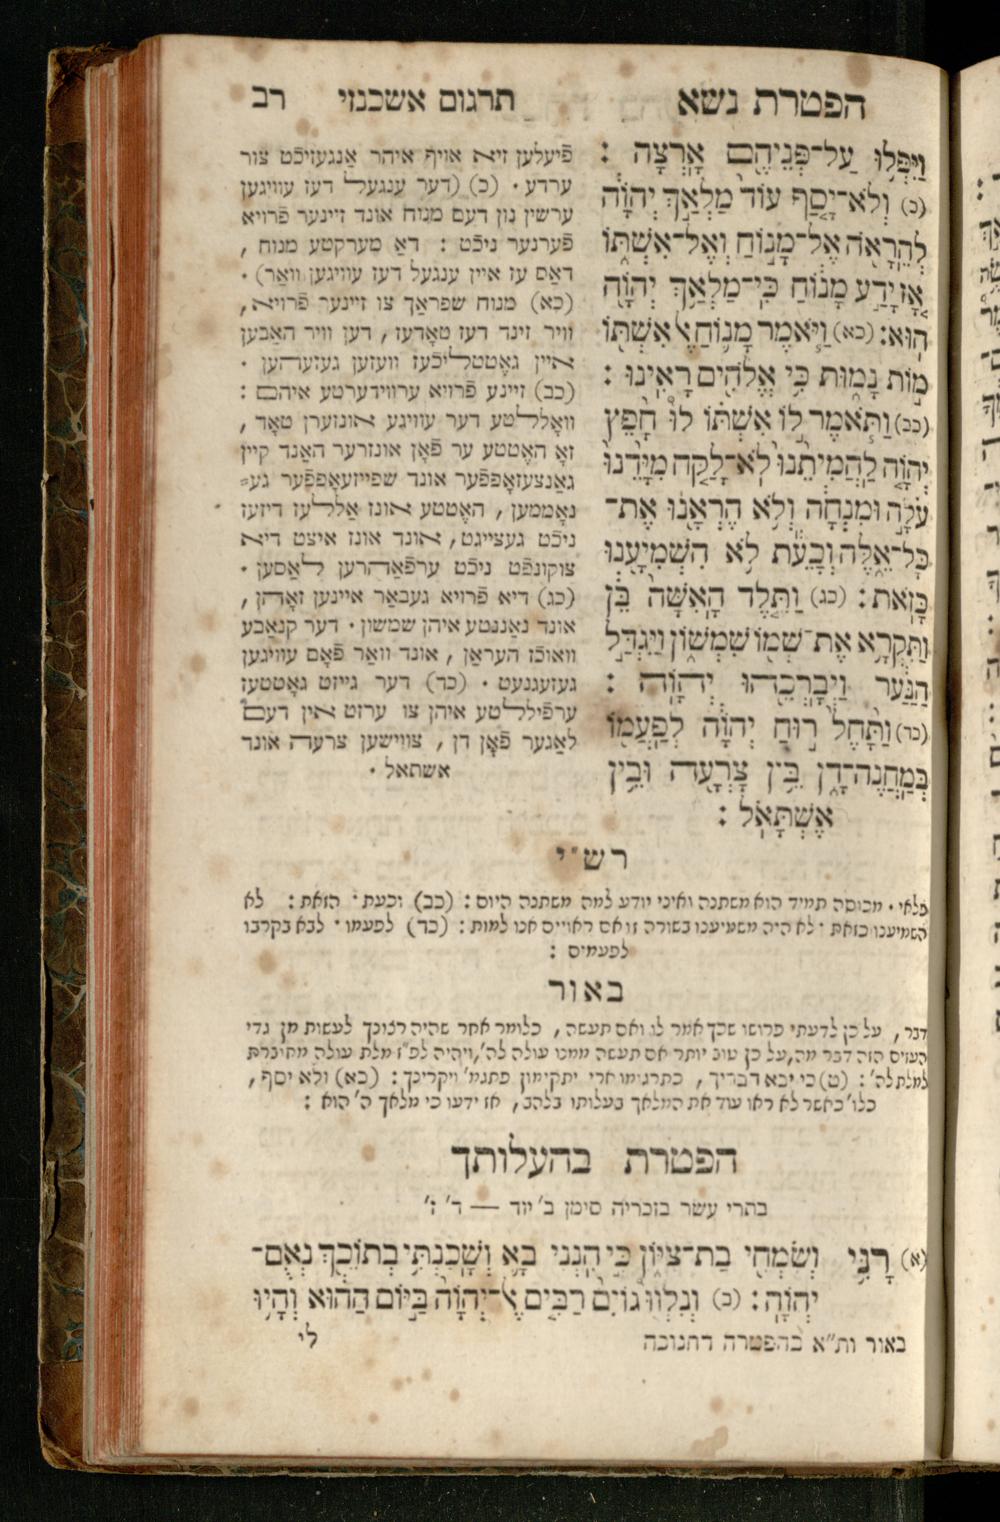 הפטרת נשא
תרגום אשכנזי
רב
וַיִּפְּלוּ עַל־פְּנֵיהֶם אָרְצָה :
(כ) וְלֹא־יָסַף עוֹד מַלְאַךְ יְהוָֹה
לְהֵרָאֹה אֶל־מָנוֹחַ וְאֶל־אִשְׁתּוֹ
אָז יָדַע מָנוֹחַ כִּי־מַלְאַךְ יְהוָֹה
הוּא: (כא) וַיֹּאמֶר מָנוֹחַ אֶל אִשְׁתּוֹ
מוֹת נָמוּת כִּי אֱלֹהִים רָאִינוּ :
(כב) וַתֹּאמֶר לוֹ אִשְׁתּוֹ לוּ חָפֵץ
יְהוָֹה לַהֲמִיתֵנוּ לֹא־לָקַח מִיָּדֵנוּ
עֹלָה וּמִנְחָה וְלֹא הֶרְאָנוּ אֶת־
כָּל־אֵלֶּה וְכָעֵת לֹא הִשְׁמִיעָנוּ
כָּזֹאת: (כג) וַתֵּלֶד הָאִשָּׁה בֵּן
וַתִּקְרָא אֶת־שְׁמוֹ שִׁמְשׁוֹן וַיִּגְדַּל
הַנַּעַר וַיְבָרְכֵהוּ יְהוָֹה :
(כד) וַתָּחֶל רוּחַ יְהוָֹה לְפַעֲמוֹ
בְּמַחֲנֵה־דָן בֵּין צָרְעָה וּבֵין
אֶשְׁתָּאֹל :
פֿיעלען זיא אויף איהר אַנגעזיכֿט צור
ערדע. (כ) (דער ענגעל דעז עוויגען
ערשין נון דעם מנוח אונד זיינער פֿרויא
פֿערנער ניכֿט : דאַ מערקטע מנוח,
דאַס עז איין ענגעל דעז עוויגען וואַר).
(כא) מנוח שפראַך צו זיינער פֿרויא,
וויר זינד דעז טאָדעז, דען וויר האַבען
איין גאָטטליכֿעז וועזען געזעהען.
(כב) זיינע פֿרויא ערווידערטע איהם :
וואָללטע דער עוויגע אונזערן טאָד,
זאָ האָטטע ער פֿאָן אונזרער האַנד קיין
גאַנצעזאָפּפֿער אונד שפייזעאָפּפֿער גע=
נאָממען, האָטטע אונז אַללעז דיזעז
ניכֿט געצייגט, אונד אונז איצט דיא
צוקונפֿט ניכֿט ערפֿאַהרען לאַסען.
(כג) דיא פֿרויא געבאַר איינען זאָהן,
אונד נאַננטע איהן שמשון. דער קנאַבע
וואוכֿז העראַן, אונד וואַר פֿאָם עוויגען
געזעגנעט. (כד) דער גייזט גאָטטעז
ערפֿיללטע איהן צו ערזט אין דעם
לאַגער פֿאָן דן, צווישען צרעה אונד
אשתאל.
רש״י
פלאי. מכוסה תמיד הוא משתנה ואיני יודע למה משתנה היום : (כב) וכעת. הזאת : לא
השמיענו כזאת. לא היה משמיענו בשורה זו אם ראויים אנו למות : (כד) לפעמו. לבא בקרבו
לפעמים :
באור
דבר, על כן לדעתי פרושו שכך אמר לו ואם תעשה, כלומר אחר שהיה רצונך לעשות מן גדי
העזים הזה דבר מה, על כן טוב יותר אם תעשה ממנו עולה לה', ויהיה לפ״ז מלת עולה מחוברת
למלת לה' : (ט) כי יבא דבריך, כתרגימו ארי יתקימון פתגמ' ויקרינך : (כא) ולא יסף,
כלו' כאשר לא ראו עוד את המלאך בעלותו בלהב, אז ידעו כי מלאך ה' הוא :
הפטרת בהעלותך
בתרי עשר בזכריה סימן ב' יוד — ד' ז'
(א) רָנִּי וְשִׂמְחִי בַּת־צִיּוֹן כִּי הִנְנִי בָא וְשָׁכַנְתִּי בְתוֹכֵךְ נְאֻם־
יְהוָֹה : (ב) וְנִלְווּ גוֹיִם רַבִּים אֶל־יְהוָֹה בַּיּוֹם הַהוּא וְהָיוּ
באור ות״א בהפטרה דחנוכה
לי